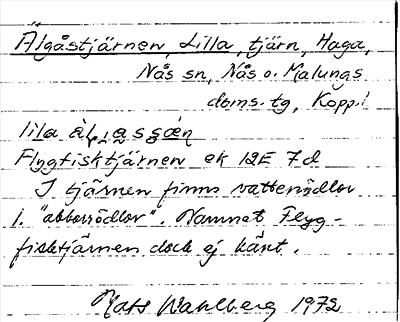 Älgåstjärnen, Lilla, tjärn, Haga,
Nås sn, Nås o. Malungs
doms. tg, Kopp.l
lila
Flygfisktjärnen ek 12E 7d
I tjärnen finns vattenödlor
i. "abborrödlor". Namnet Flyg-
fisktjärnen dock ej känt.
Mats Wahlberg 1972